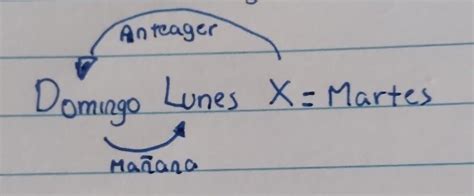 Anteager
Domingo Lunes X = Martes
Mañana